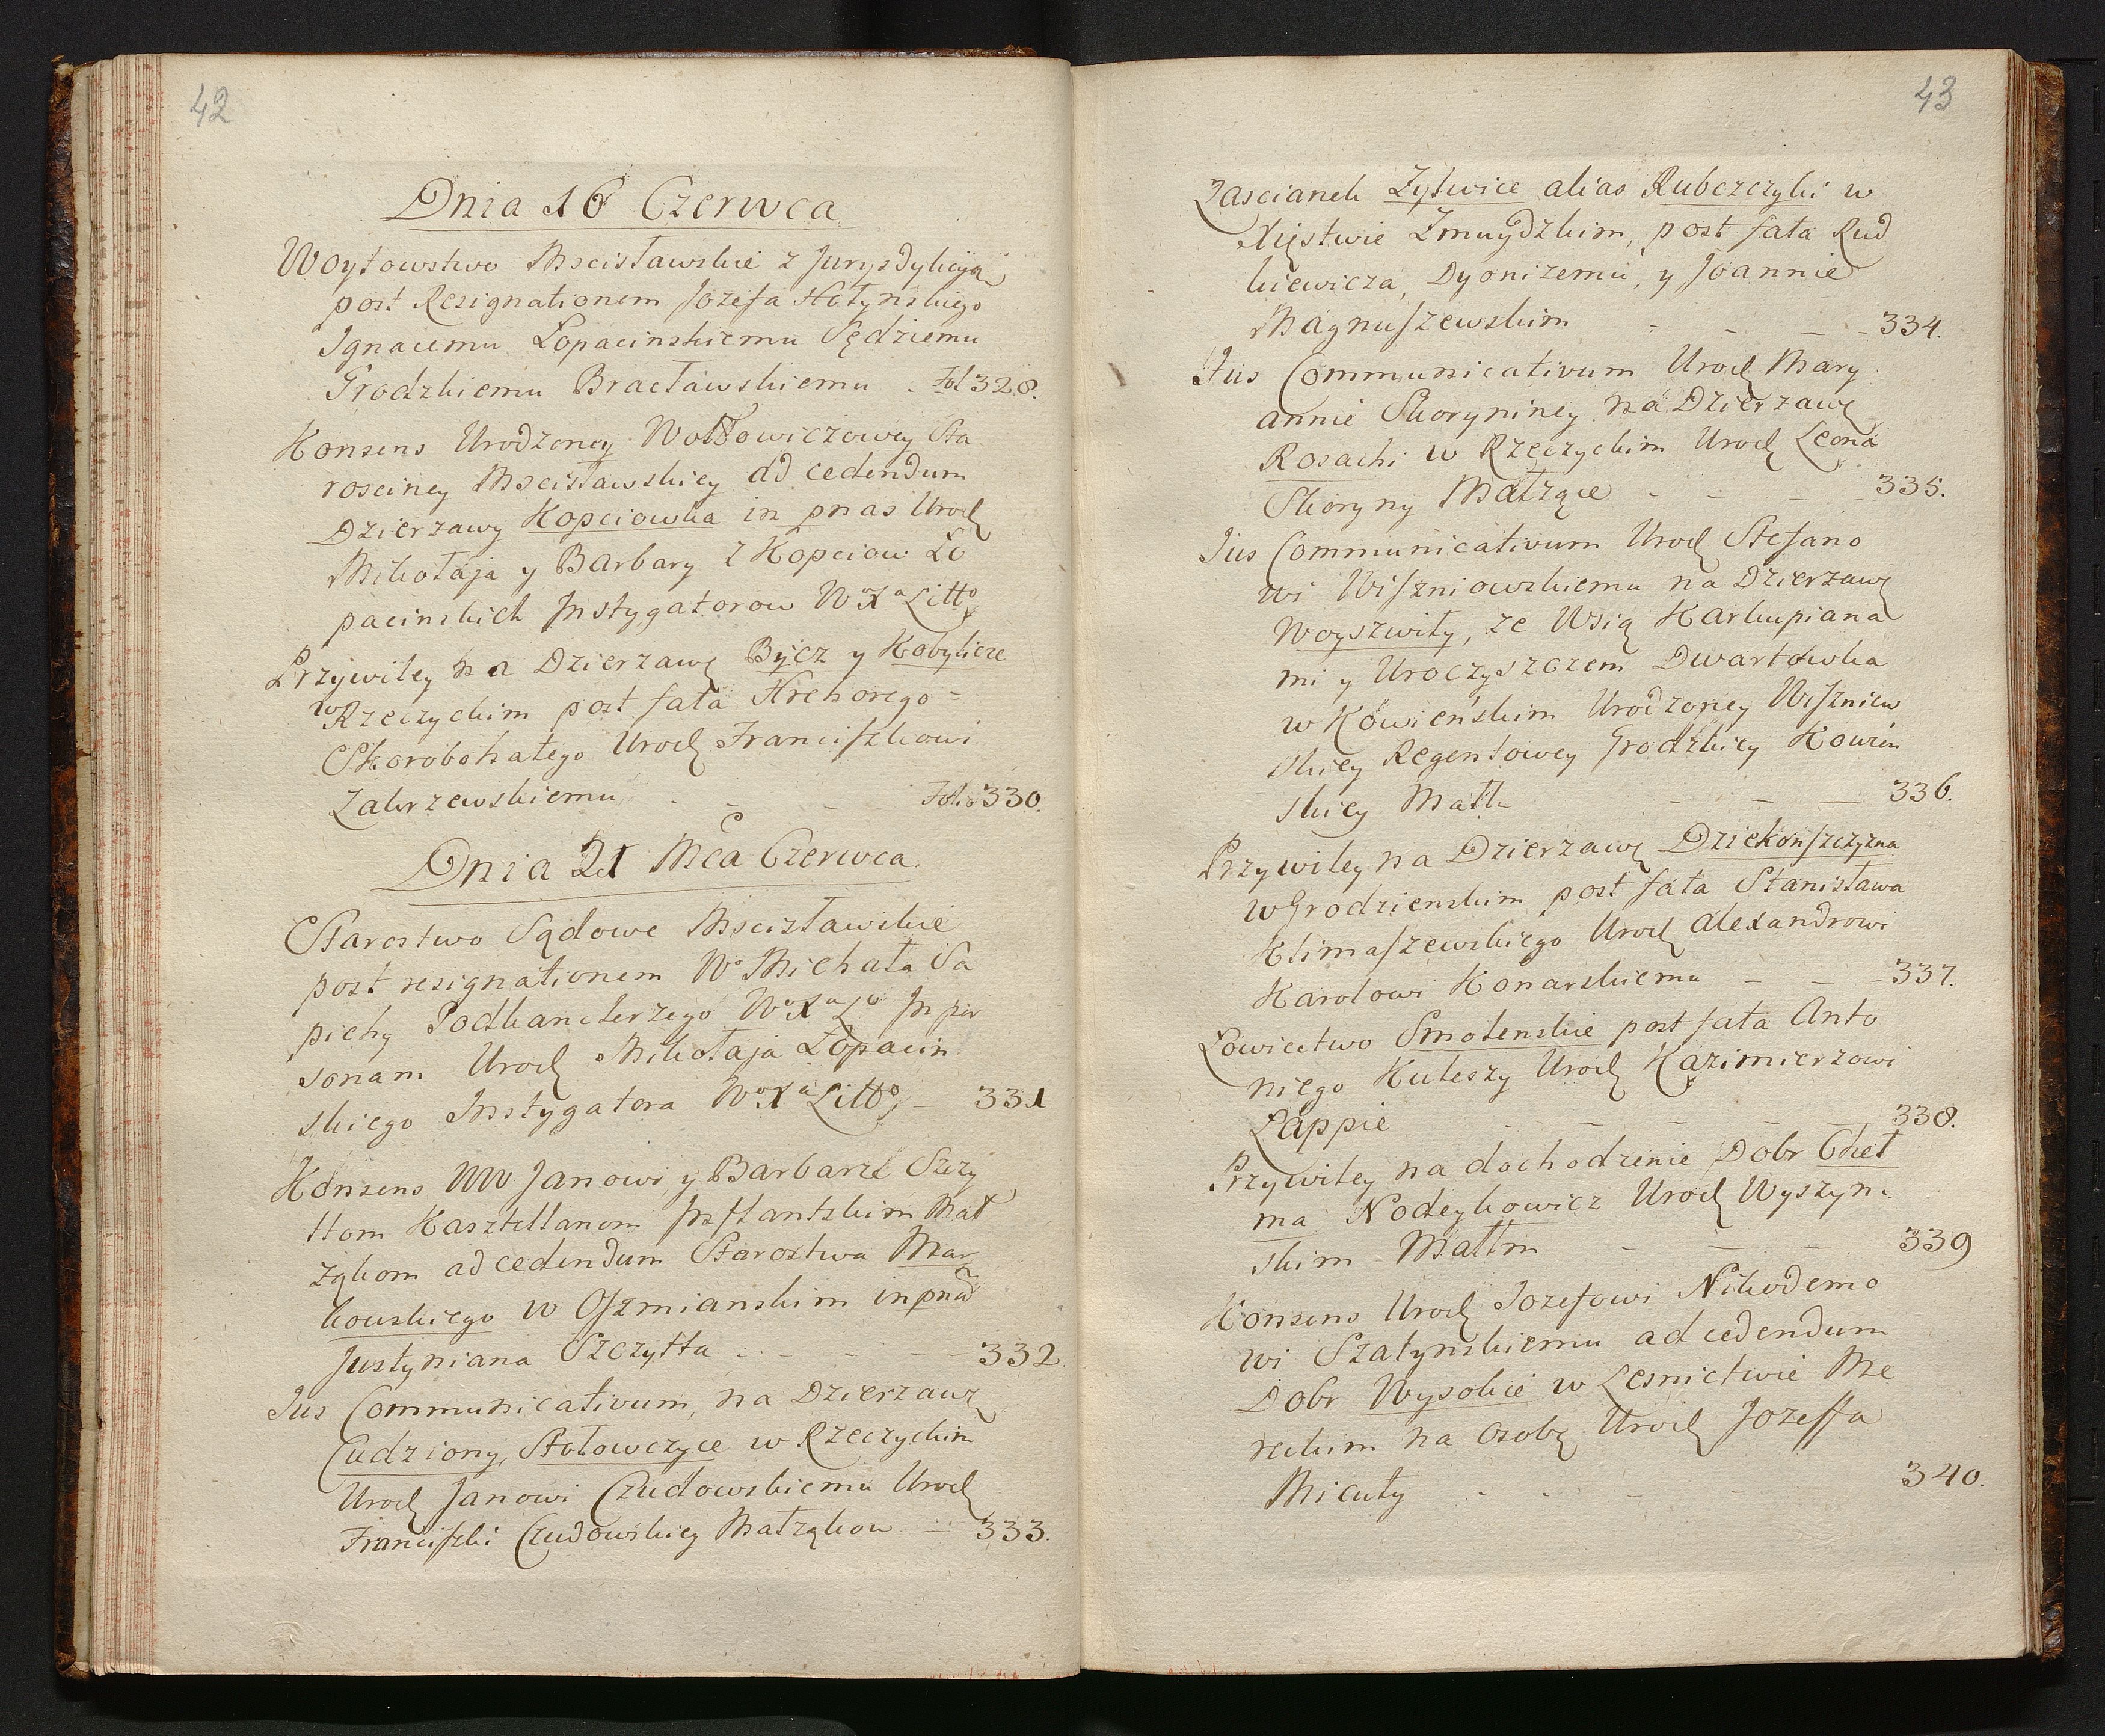 42
Dnia 16 Czerwca
Woytowstwo Mscisławskie z Jurysdykcyą
post Resignationem Jozefa Hołynskiego
Ignacemu Łopacinskiemu Sędziemu
Grodzkiemu Bracławskiemu . Fol 328.
Konsens Urodzoney Wołłowiczowey Sta
rosciney Mscisławskiey ad cedendum
Dzierzawy Kopciowka in pnas Urod
Mikołaja y Barbary z Kopciow Ło
pacinskich Instygatorow W° X a Litt°
Przywiley na Dzierzawę Bycz y Kobylicze
w Rzeczyckim post fata Hrehorego =
Skorobohatego Urod Franciszkowi
Zakrzewskiemu . - - Folio 330.
Dnia 21 Mca Czerwca.
Starostwo Sądowe Mscisławskie
post resignationem W° Michała Sa
piehy Podkanclerzego W° X a L° In per
sonam Urod Mikołaja Łopacin
skiego Instygatora W° X a Litt° - 331
Konsens WW Janowi y Barbarze Szczy
ttom Kasztellanom Inflantskim Mał
żąkom ad cedendum Starostwa Mar
kowskiego w Oszmianskim in pna
Justyniana Szczytta . . - - - 332.
Jus Communicativum, na Dzierzawę
Cudziony, Stołowczyce w Rzeczyckim
Urod Janowi Czudowskiemu Urod
Franciszki Czudowskiey Małząkow - 333.
43
Zascianek Zytwice alias Rubczczyki w
Xięstwie Zmuydzkim, post fata Rud
kiewicza, Dyonizemu, y Joannie
Magnuszewskim - - - - 334.
Jus Communicativum Urod Mary
annie Skoryniney na Dzierzawę
Rosachi w Rzeczyckim Urod Leona
Skoryny Małzące - - - - 335.
Jus Communicativum Urod Stefano
wi Wiszniowskiemu na Dzierzawę
Woyszwiły, ze Wsią Karkupiana
mi y Uroczyszczem Dwartowka
w Kowieńskim Urodzoney Wiszniew
skiey Regentowey Grodzkiey Kowień
skiey Małk - - - 336.
Przywiley na Dzierzawę Dziekonszczyzna
w Grodzienskim post fata Stanisława
Klimaszewskiego Urod Alexandrowi
Karolowi Konarskiemu - - - 337.
Łowiectwo Smolenskie post fata Anto
niego Kuleszy Urod Kazimierzowi
Łappie . - - - - 338.
Przywiley na dochodzenie Dobr Cheł
ma Nodeykowicz Urod Wyszyn.
skim Małłm - - - 339
Konsens Urod Jozefowi Nikodemo
wi Szatynskiemu ad cedendum
Dobr Wysokie w Lesnictwie Me
reckim na Osobę Urod Jozeffa
Micuty . . - - 340.